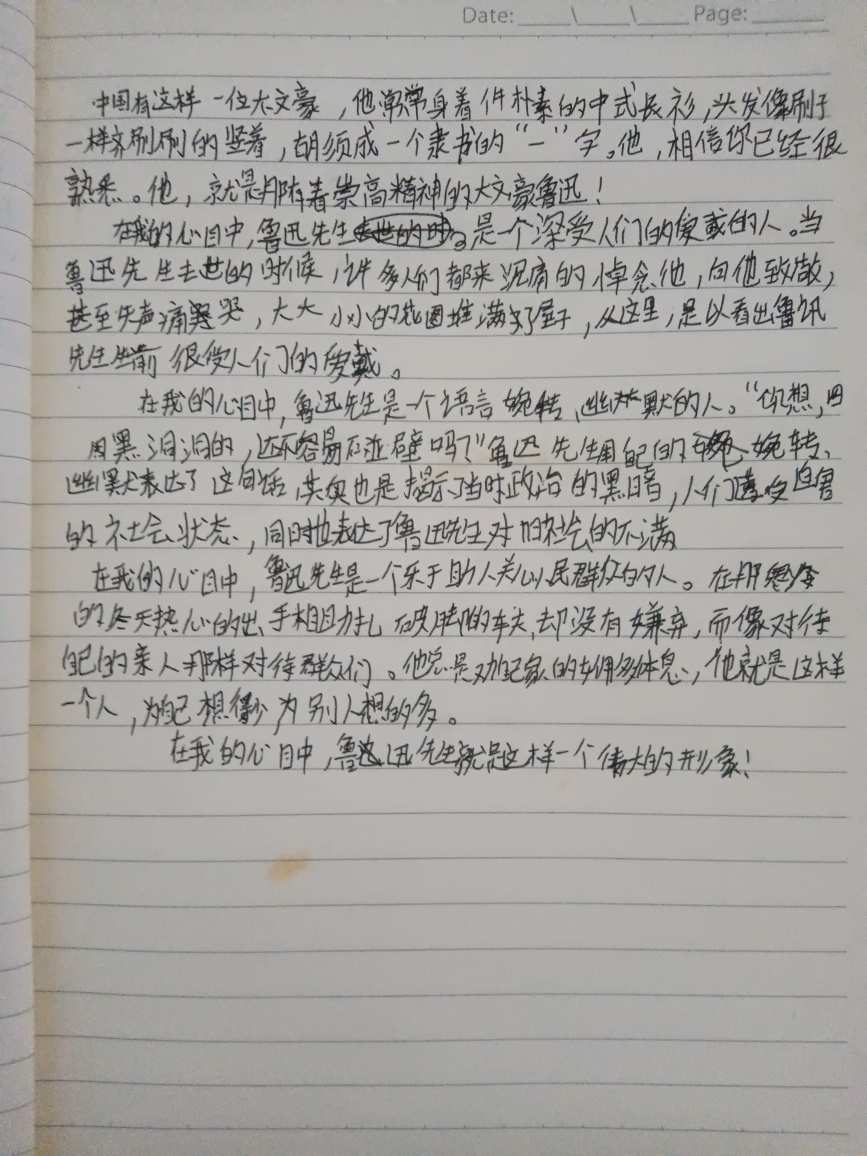 Date: _____\_____\_____ Page: _______
中国有这样一位大文豪，他常常身着件朴素的中式长衫，头发像刷子
一样齐刷刷的竖着，胡须成一个隶书的“一”字。他，相信你已经很
熟悉。他，就是那有着崇高精神的大文豪鲁迅！
在我的心目中，鲁迅先生是一个深受人们的爱戴的人。当
鲁迅先生去世的时候，许多人们都来沉痛的悼念他，向他致敬，
甚至失声痛哭，大大小小的花圈堆满了屋子，从这里，足以看出鲁迅
先生生前很受人们的爱戴。
在我的心目中，鲁迅先生是一个语言婉转、幽默的人。“你想，四
周黑洞洞的，还不容易碰壁吗？”鲁迅先生用自己的婉转、
幽默表达了这句话，其实也是揭示了当时政治的黑暗，人们遭受迫害
的社会状态，同时也表达了鲁迅先生对旧社会的不满
在我的心目中，鲁迅先生是一个乐于助人关心人民群众的人。在那寒冷
的冬天热心的出手相助扎破脚的车夫，却没有嫌弃，而像对待
自己的亲人那样对待群众们。他总是劝自己家的女佣多休息，他就是这样
一个人，为自己想得少为别人想的多。
在我的心目中，鲁迅先生就是这样一个伟大的形象！